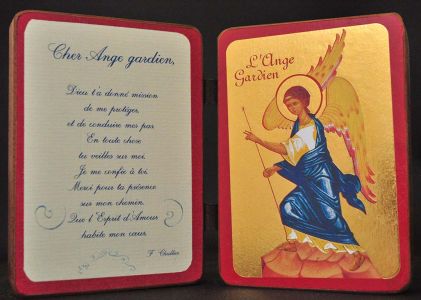 Cher Ange gardien,
Dieu t'a donné mission
de me protéger,
et de conduire mes pas.
En toute chose
tu veilles sur moi.
Je me confie à toi.
Merci pour ta présence
sur mon chemin.
Que l'Esprit d'Amour
habite mon cœur.
L'Ange
Gardien